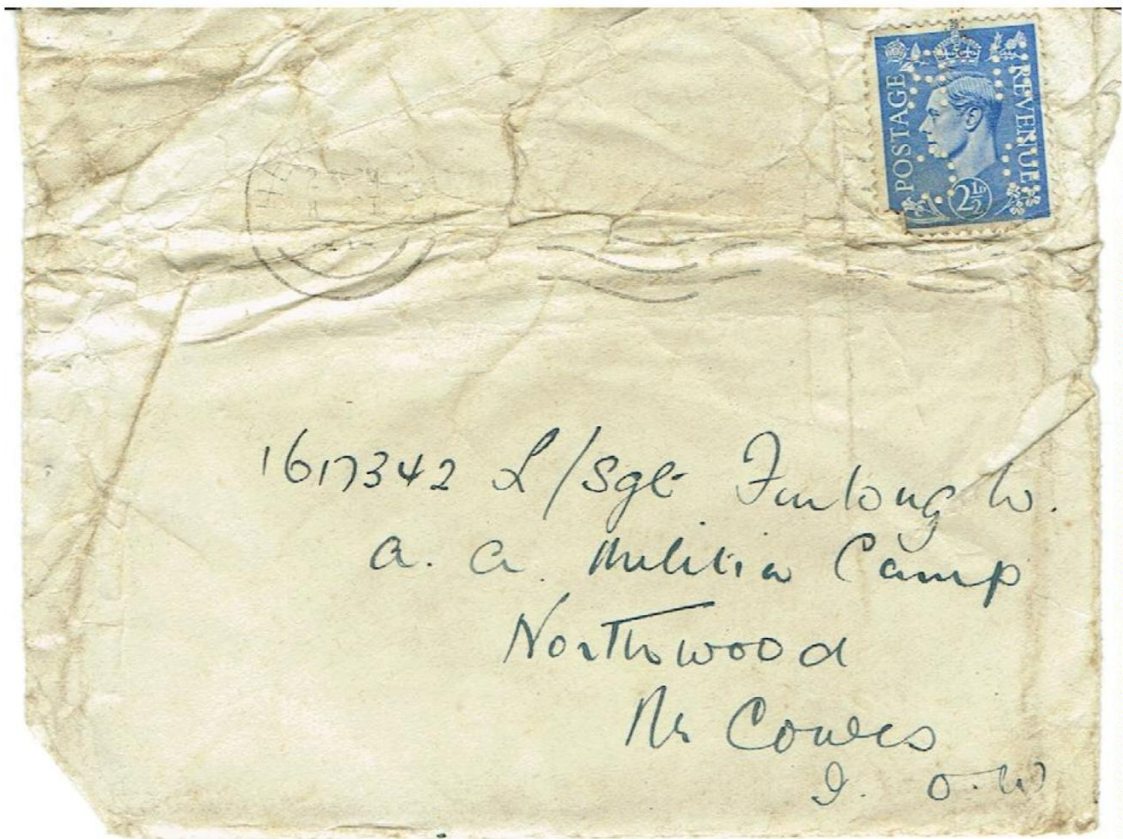 POSTAGE REVENUE
2½D
1617342 L/Sgt Furlong W.
A. A. Militia Camp
Northwood
Nr Cowes
I. O. W